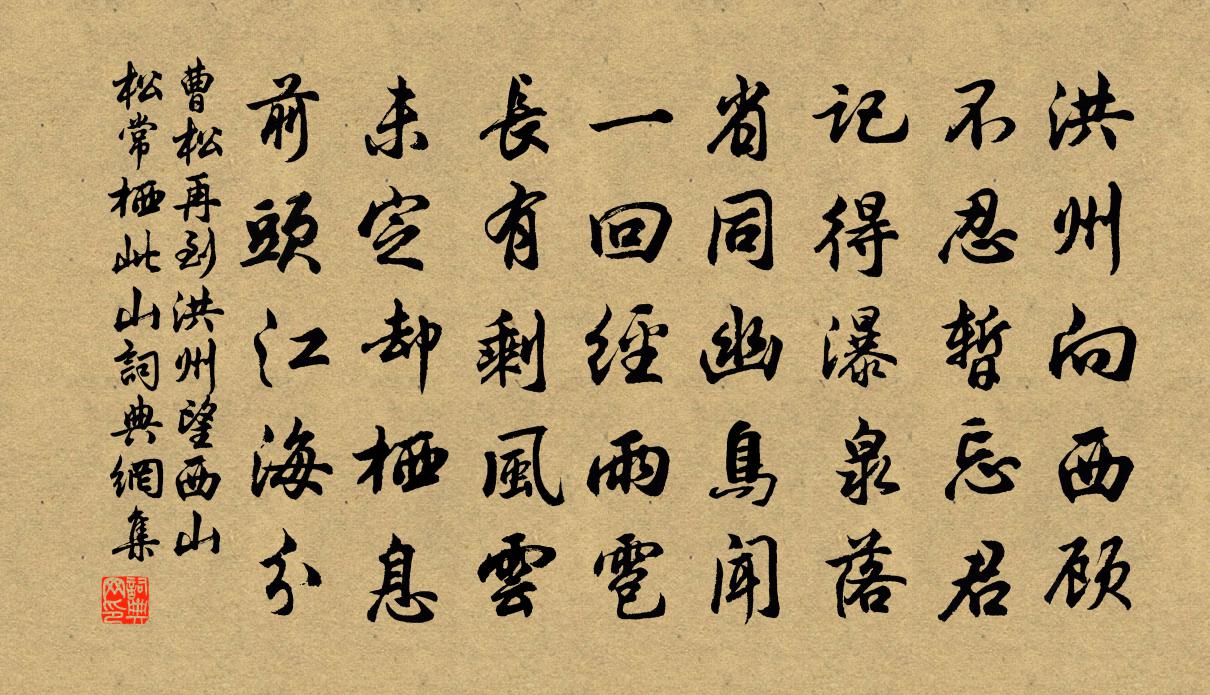 洪州向西顾
不忍暫忘君
記得瀑泉落
省同幽鳥聞
一回經雨雹
長有剩風雲
未定却栖息
前頭江海分
曹松再到洪州望西山
松常栖此山詞典網集
詞典网印